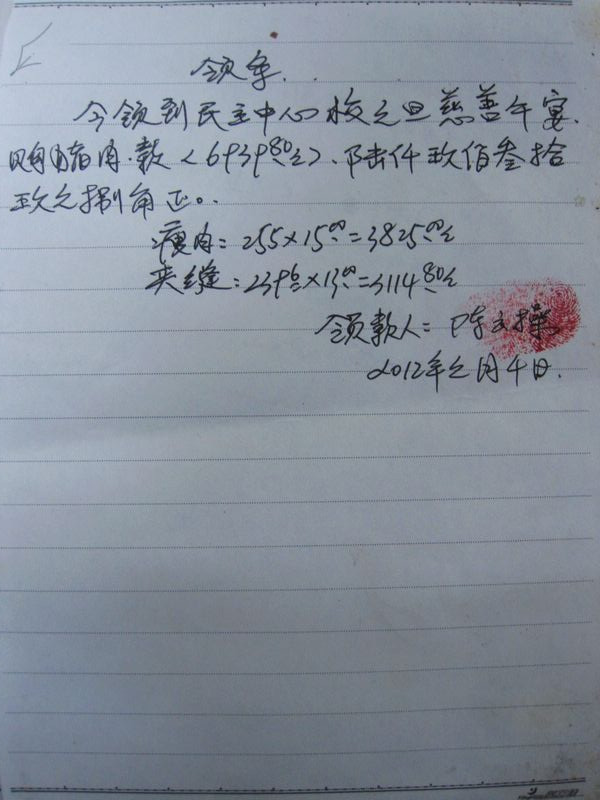 领条
今领到民主中心校元旦慈善午宴
购猪肉款〈6939.80元〉.陆仟玖佰叁拾
玖元捌角正。
瘦肉：255×15.00=3825.00元
夹缝：239.6×13.00=3114.80元
领款人：陈
2012年元月4日.